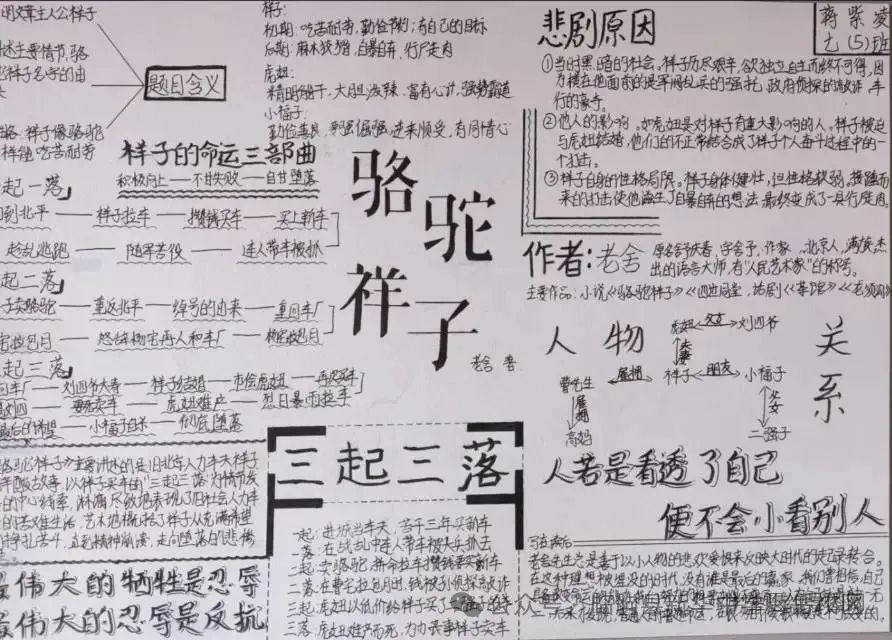 明文章主人公祥子
述主要情节,骆
祥子名字的由
题目含义
祥子像骆驼
样能吃苦耐劳
祥子:
初期:吃苦耐劳,勤俭节约;有自己的目标
后期:麻木狡猾,自暴自弃,行尸走肉
虎妞:
精明能干,大胆泼辣,富有心计,强势霸道
小福子:
勤俭善良,要强倔强,逆来顺受,有同情心
祥子的命运三部曲
积极向上——不甘失败——自甘堕落
起一落」
到北平——祥子拉车——攒钱买车——买上新车
趁乱逃跑——随军苦役——连人带车被抓
起二落」
子卖骆驼——重返北平——绰号的由来——重回车厂
怒给杨宅再人和车厂
起三落」
回车厂——刘四爷大寿——祥子结婚——市侩虎妞——再次买车
要死卖车——虎妞难产——烈日暴雨拉车
最后的希望——小福子自杀——彻底堕落
骆驼祥子
老舍 著
悲剧原因
蒋紫凌
七(5)班
①当时黑暗的社会。祥子历尽艰辛,欲独立自主而终不可得,因
为横在他面前的是军阀乱兵的强扎,政府侦探的敲诈,车
行的豪夺。
②他人的影响。如虎妞是对祥子有重大影响的人。祥子被迫
与虎妞结婚,他们的不正常结合成了祥子个人奋斗过程中的一
个打击。
③祥子自身的性格局限。祥子身体健壮,但性格软弱,接踵而
来的打击使他滋生了自暴自弃的想法,最终变成了一具行尸走肉。
作者:老舍
原名舒庆春,字舍予,作家,北京人,满族杰
出的语言大师,有“人民艺术家”的称号。
主要作品:小说《骆驼祥子》《四世同堂》,话剧《茶馆》《龙须沟》
人物关系
虎妞 父女 刘四爷
夫妻
曹先生 雇拥 祥子 朋友 小福子
雇拥
父女
高妈
二强子
人若是看透了自己
便不会小看别人
骆驼祥子》主要讲述的是旧北平人力车夫祥子
辛酸故事。以祥子买车的“三起三落”为情节发
的中心线索,淋漓尽致地表现了旧社会人力车
的苦难生活,艺术地概括了祥子从充满希望
挣扎苦斗,直到精神崩溃,走向堕落的悲惨
最伟大的牺牲是忍辱
最伟大的忍辱是反抗
三起三落
一起:进城当车夫,苦干三年买新车
一落:在战乱中连人带车被大兵抓去
二起:卖骆驼,拼命拉车攒钱要买新车
二落:在曹宅拉包月时,钱被孙侦探敲诈
三起:虎妞以低价给祥子买了
三落:虎妞难产而死,为办丧事祥子卖车
写在读后
老舍先生总是善于以小人物的悲欢爱恨来反映大时代的
在这种理想被埋没的时代,没有谁是最后的赢家。我们曾相信,自己